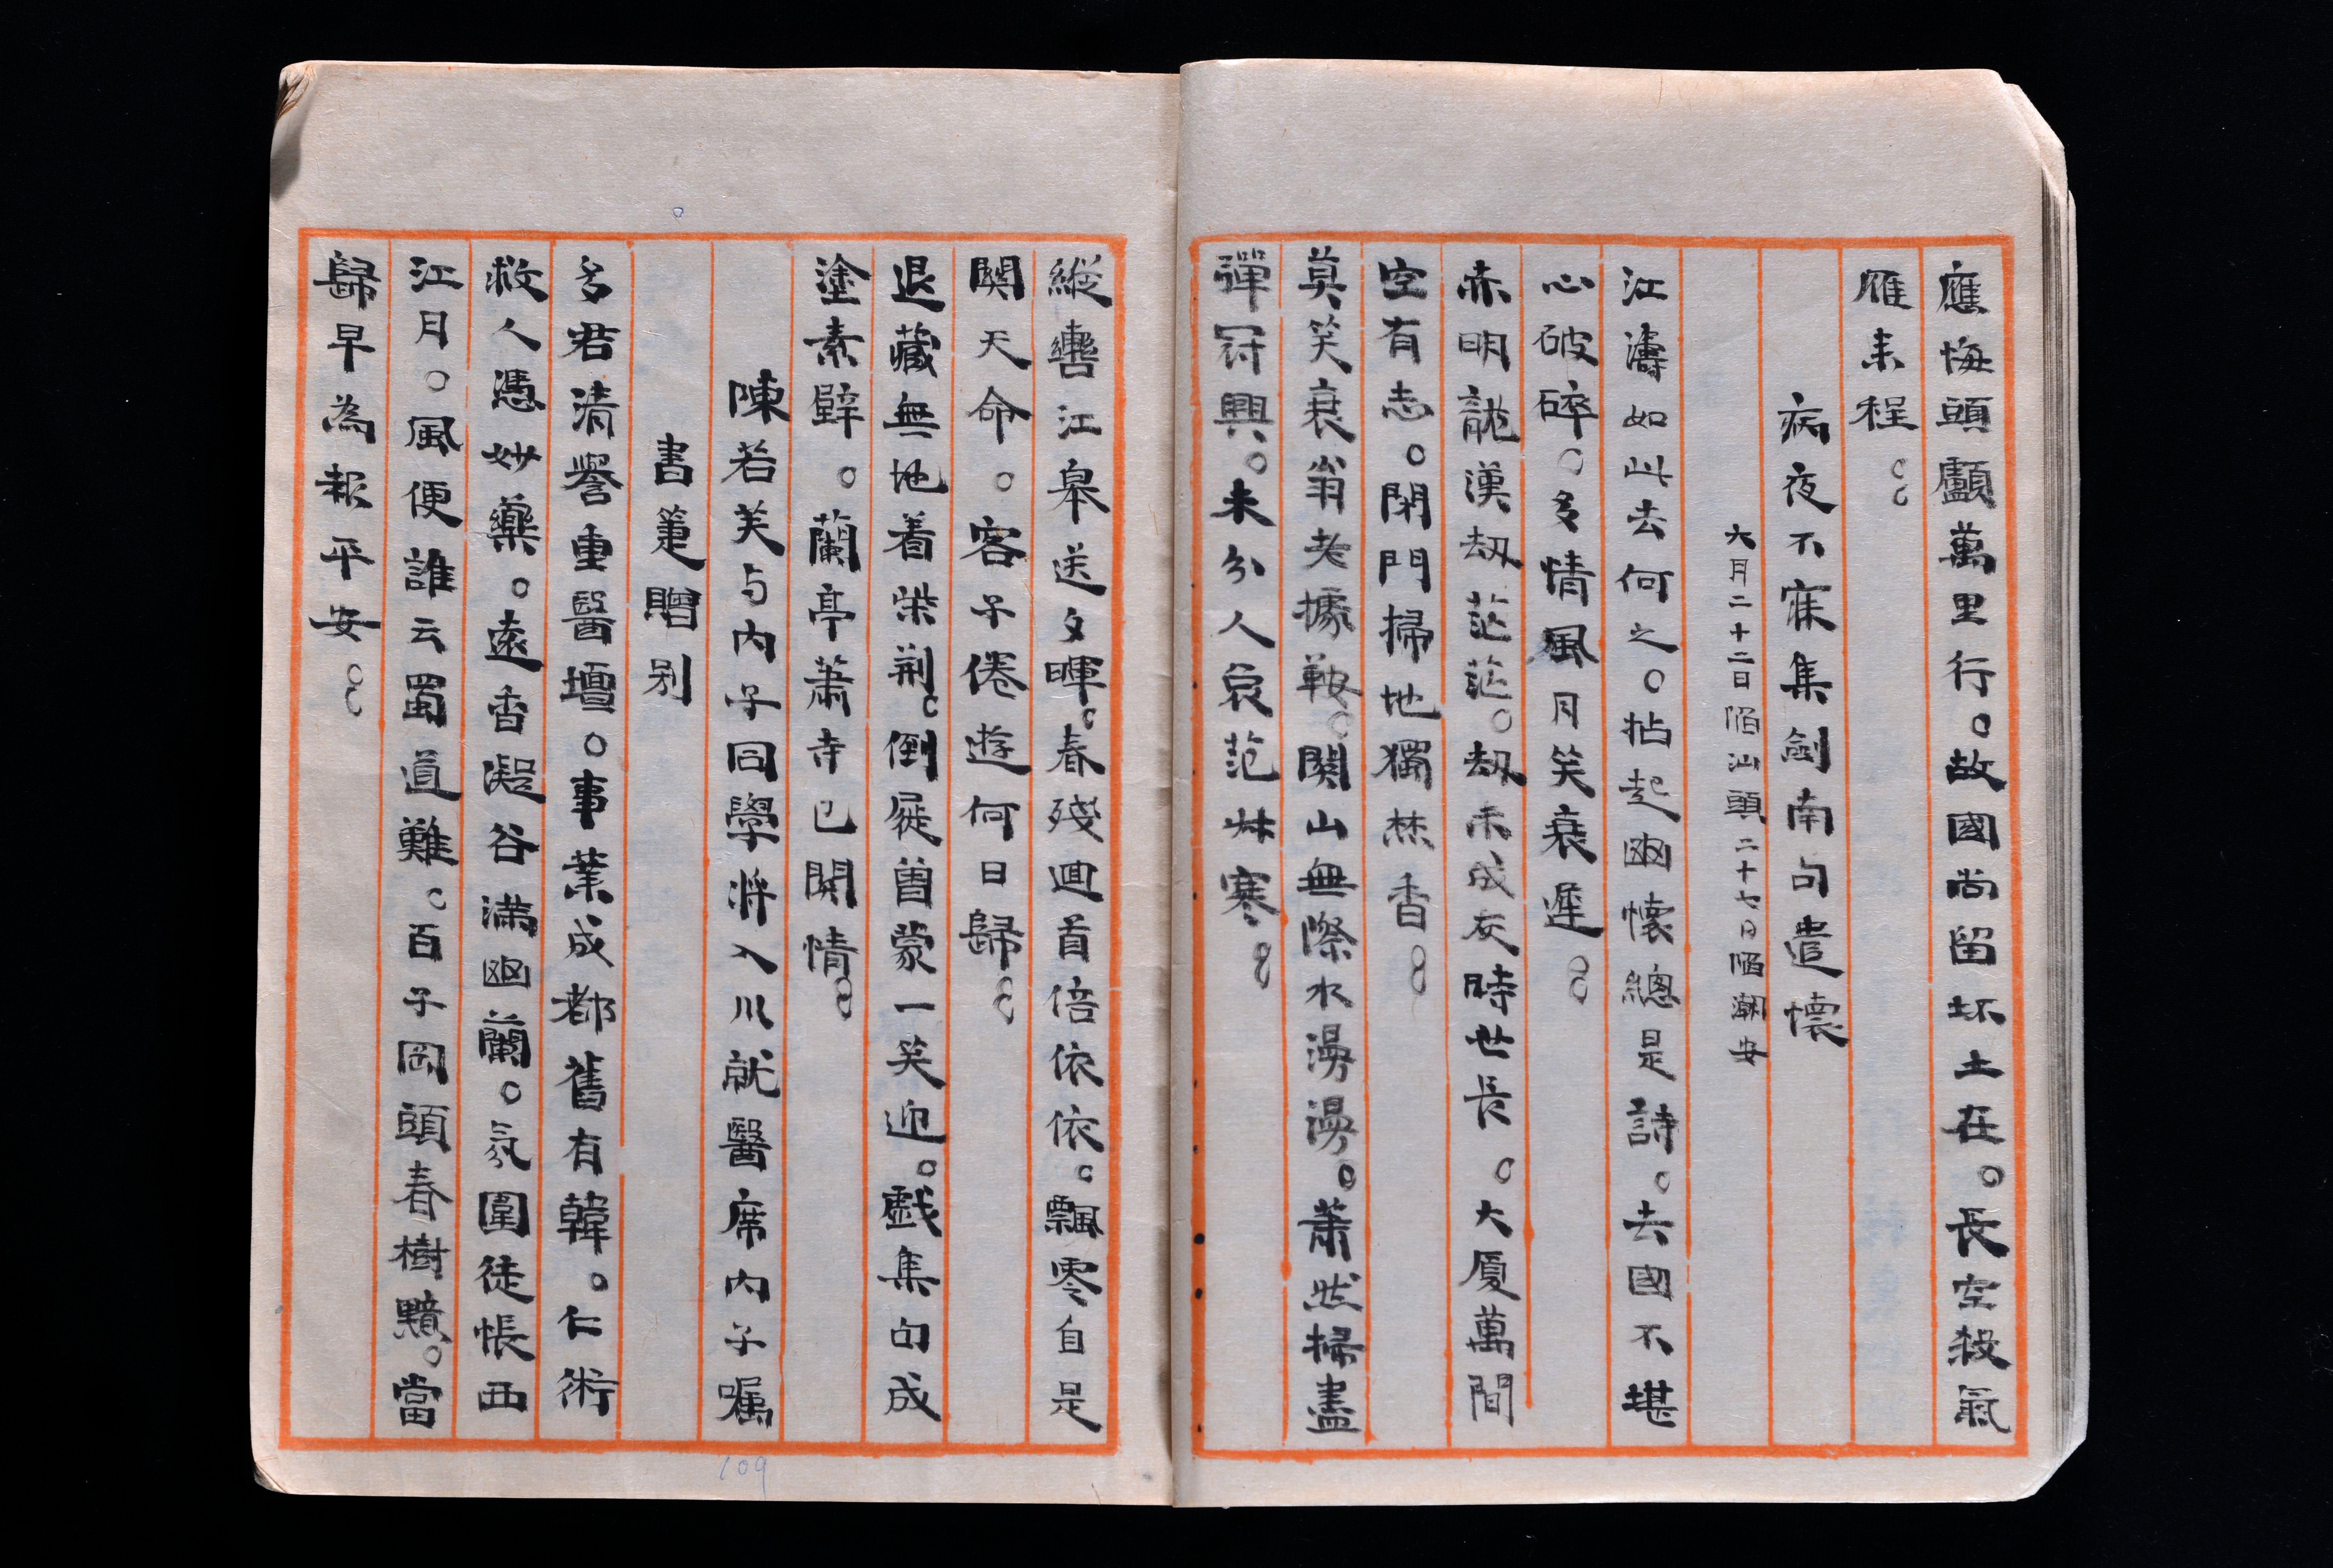 應悔頭顱萬里行。故國尚留坏土在。長空殺氣
雁來程。。
病夜不寐集劍南句遣懷
六月二十二日陷汕頭二十七日陷潮安
江濤如此去何之。拈起幽懷總是詩。去國不堪
心破碎。多情風月笑衰遲。。
赤明龍漢劫茫茫。劫未成灰時世長。大厦萬間
空有志。閉門掃地獨焚香。。
莫笑衰翁老據鞍。關山無際水漫漫。蕭然掃盡
彈冠興。未分人哀范叔寒。。
縱轡江皋送夕暉。春殘迴首倍依依。飄零自是
關天命。客子倦遊何日歸。。
退藏無地着柴荆。倒屣曾蒙一笑迎。戲集句成
塗素壁。蘭亭蕭寺已關情。。
陳若芙与内子同學將入川就醫席内子囑
書箑贈别
多君清譽重醫壇。事業成都舊有韓。仁術
救人憑妙藥。遠香凝谷滿幽蘭。氛圍徒悵西
江月。風便誰云蜀道難。百子岡頭春樹黯。當
歸早為報平安。。
109